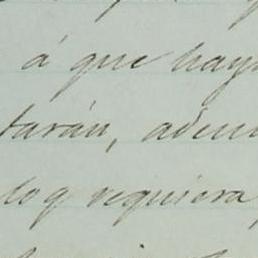 á que hay
tarán, adem
lo q requiera,